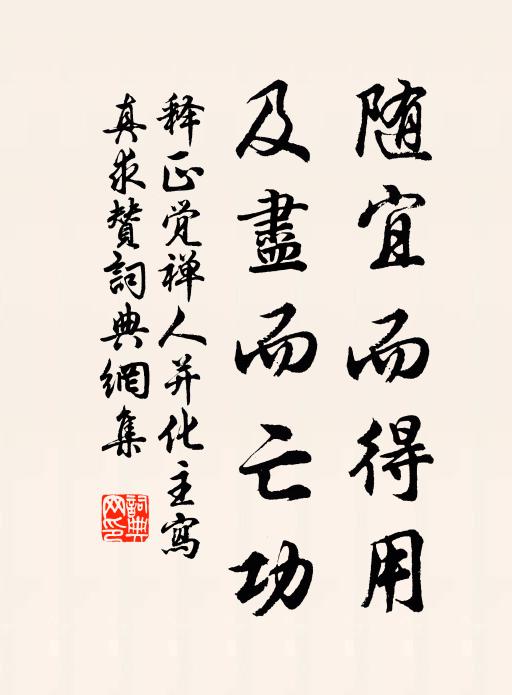 随宜而得用
及盡而亡功
释正觉禅人并化主寫
真求贊詞典網集
詞典網印